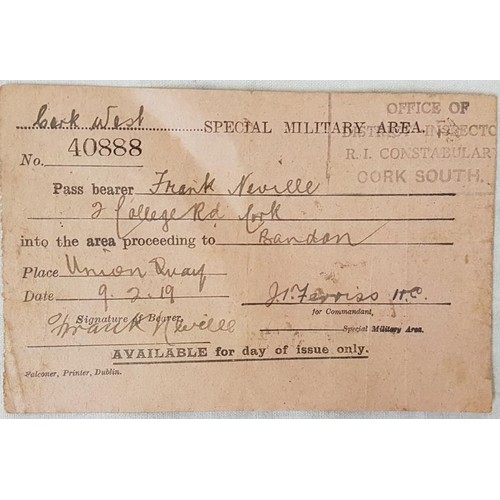 Cork West SPECIAL MILITARY AREA.
OFFICE OF
DISTRICT INSPECTOR
R.I. CONSTABULARY
CORK SOUTH.
No. 40888
Pass bearer Frank Neville
2 College Rd Cork
into the area proceeding to Bandon
Place Union Quay
Date 9.2.19
Signature of Bearer,
for Commandant,
Frank Neville
Special Military Area.
AVAILABLE for day of issue only.
Falconer, Printer, Dublin.